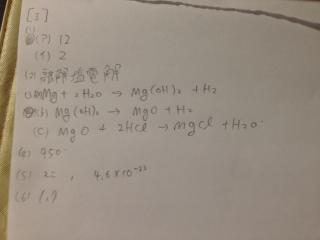 [I]
(1)(ア) 12
(イ) 2
(2) 融解塩電解
(3)(a) Mg + 2H₂O → Mg(OH)₂ + H₂
(b) Mg(OH)₂ → MgO + H₂
(C) MgO + 2HCl → MgCl + H₂O
(4) 950
(5) 22 , 4.8×10⁻²³
(6) 1.7